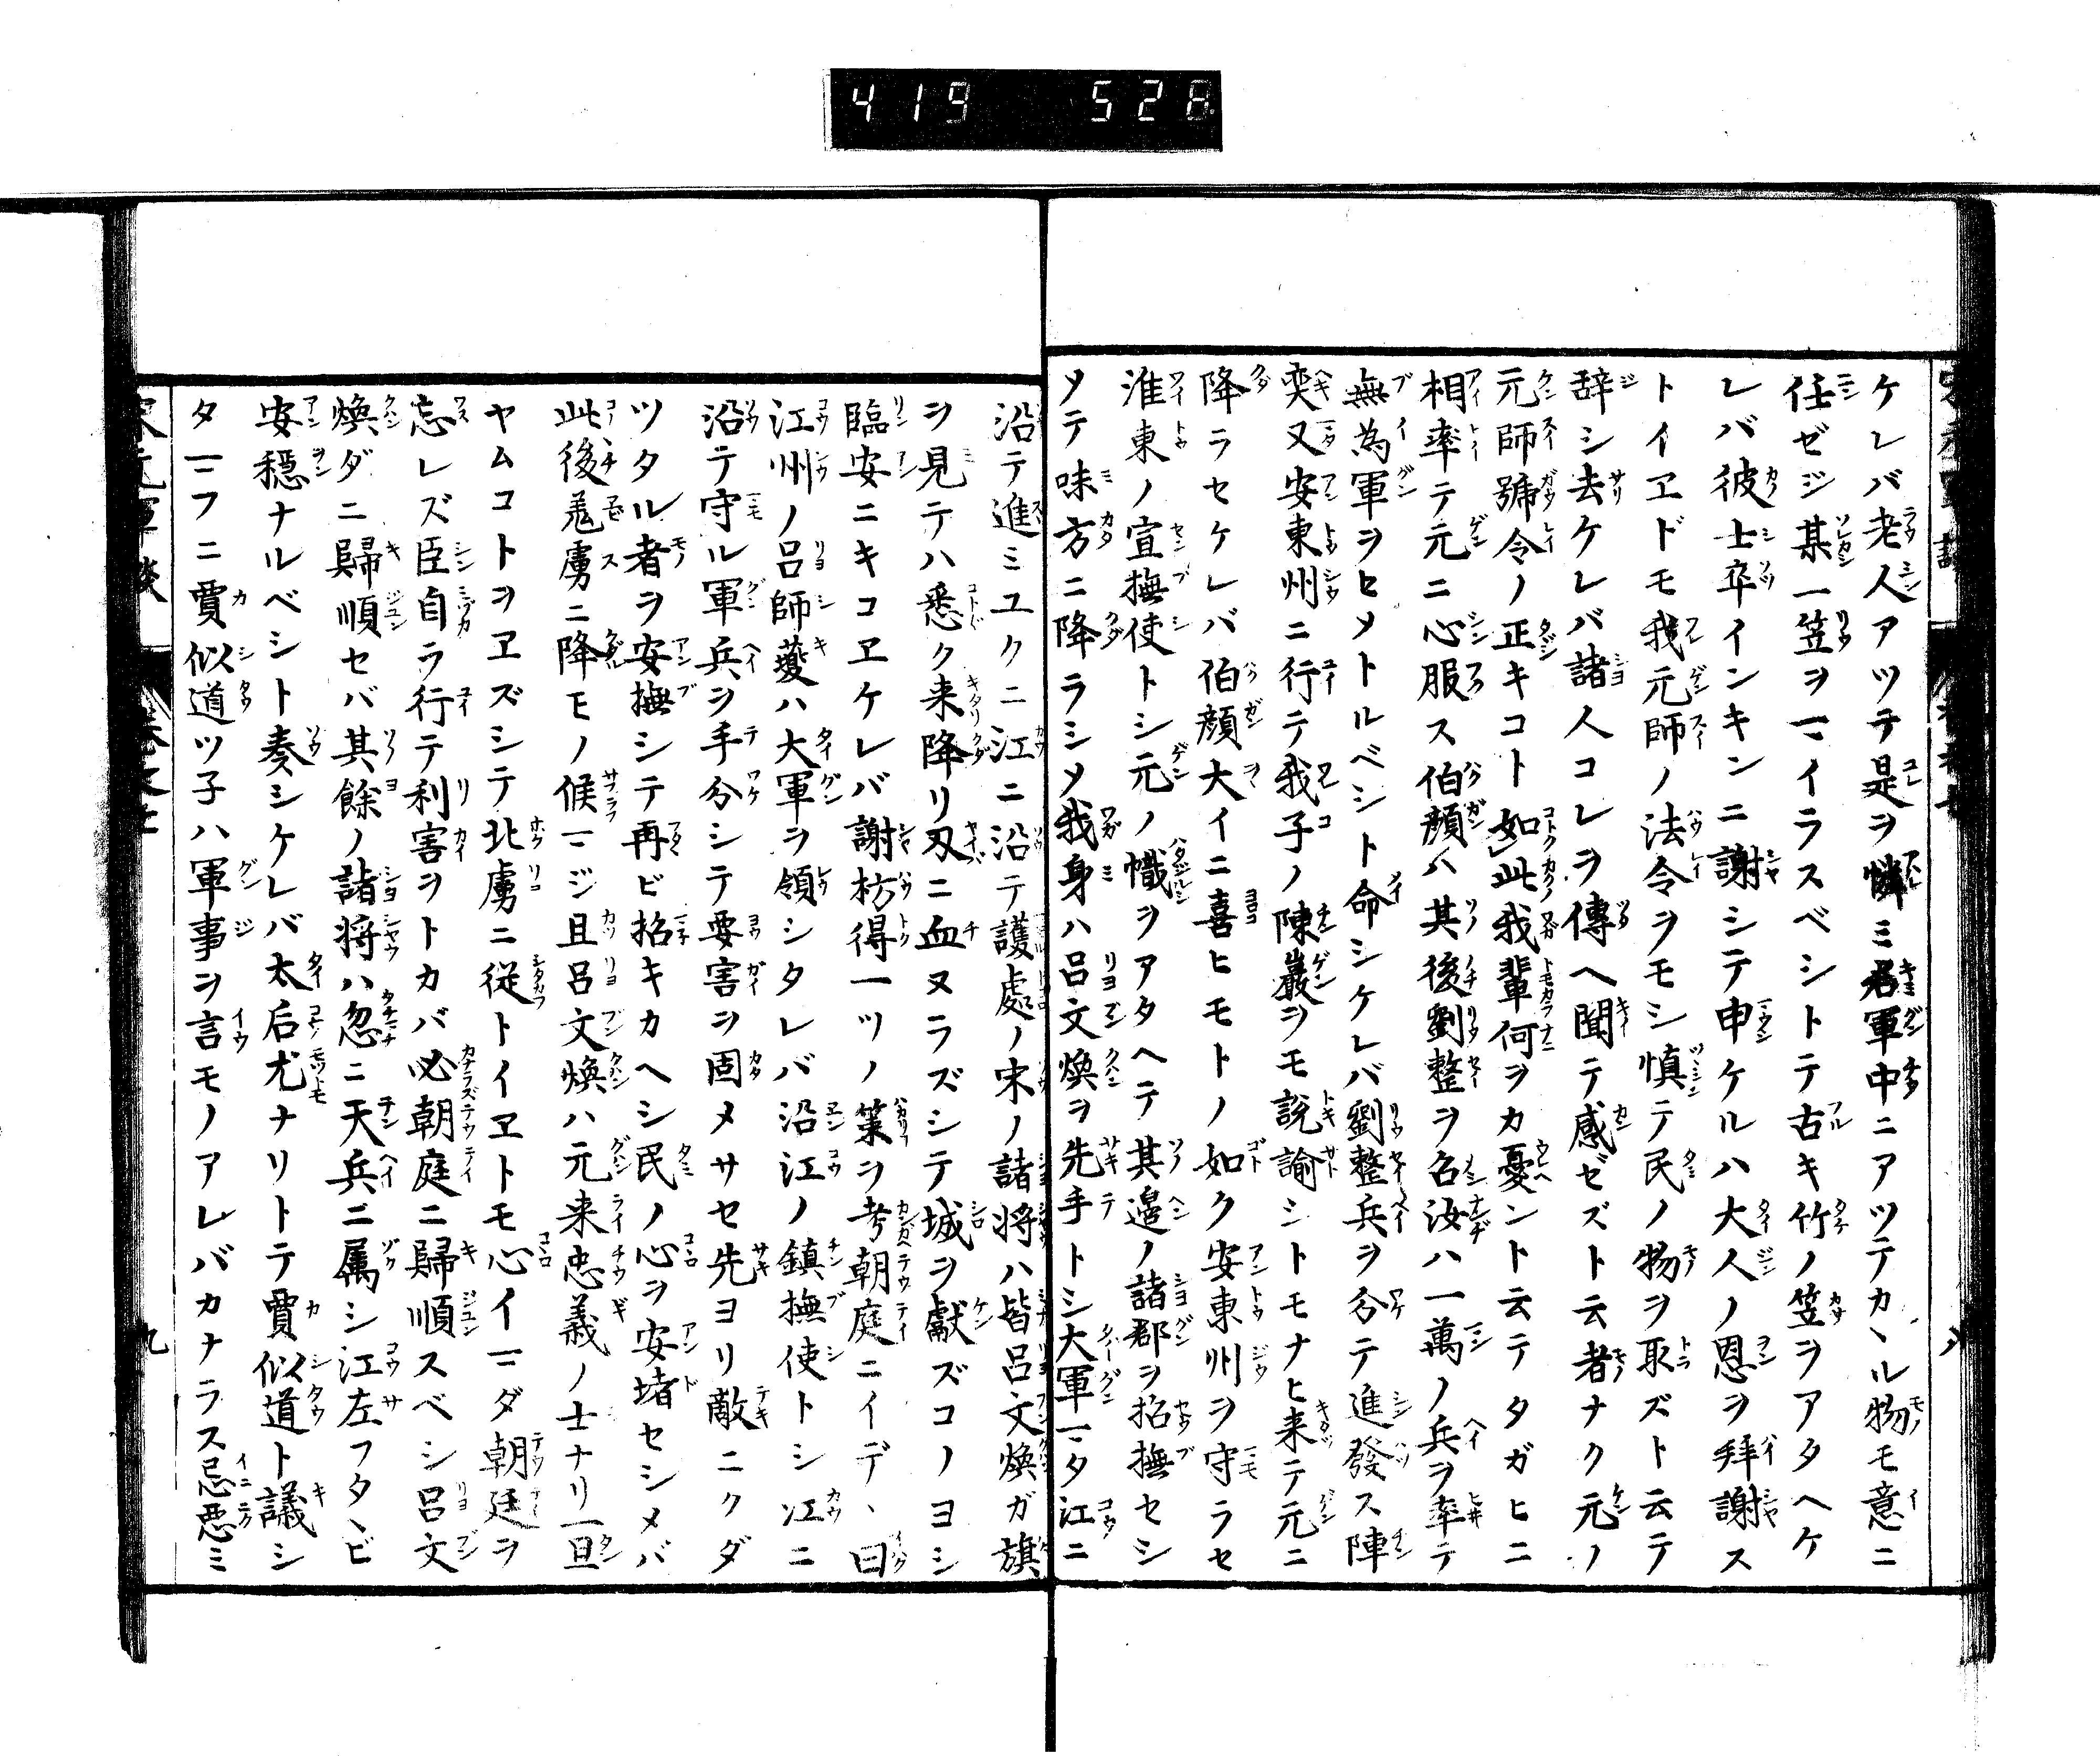 419 528
ケレバ老人アツテ是ヲ憐ミ君軍中ニアツテカヽル物モ意ニ
任ゼジ某一笠ヲマイラスベシトテ古キ竹ノ笠ヲアタヘケ
レバ彼士卒インキンニ謝シテ申ケルハ大人ノ恩ヲ拜謝ス
トイヱドモ我元師ノ法令ヲモシ慎テ民ノ物ヲ取ズト云テ
辞シ去ケレバ諸人コレヲ傳ヘ聞テ感ゼズト云者ナク元ノ
元師號令ノ正キコト如此我輩何ヲカ憂ント云テタガヒニ
相率テ元ニ心服ス伯顔ハ其後劉整ヲ召汝ハ一萬ノ兵ヲ率テ
無為軍ヲヒメトルベシト命シケレバ劉整兵ヲ分テ進發ス陣
奕又安東州ニ行テ我子ノ陳巖ヲモ說諭シトモナヒ来テ元ニ
降ラセケレバ伯顔大イニ喜ヒモトノ如ク安東州ヲ守ラセ
淮東ノ宣撫使トシ元ノ幟ヲアタヘテ其邉ノ諸郡ヲ招撫セシ
メテ味方ニ降ラシメ我身ハ呂文煥ヲ先手トシ大軍マタ江ニ
沿テ進ミユクニ江ニ沿テ護處ノ宋ノ諸将ハ皆呂文煥ガ旗
ヲ見テハ悉ク来降リ刃ニ血ヌラズシテ城ヲ獻ズコノヨシ
臨安ニキコヱケレバ謝枋得一ツノ策ヲ考朝庭ニイデヽ曰
江州ノ呂師夔ハ大軍ヲ領シタレバ沿江ノ鎮撫使トシ江ニ
沿テ守ル軍兵ヲ手分シテ要害ヲ固メサセ先ヨリ敵ニクダ
ツタル者ヲ安撫シテ再ビ招キカヘシ民ノ心ヲ安堵セシメバ
此後虜ニ降モノ候マジ且呂文煥ハ元来忠義ノ士ナリ一旦
ヤムコトヲヱズシテ北虜ニ従トイヱトモ心イマダ朝廷ヲ
忘レズ臣自ラ行テ利害ヲトカバ必朝庭ニ歸順スベシ呂文
煥ダニ歸順セバ其餘ノ諸将ハ忽ニ天兵ニ属シ江左フタヽビ
安穏ナルベシト奏シケレバ太后尤ナリトテ賈似道ト議シ
タマフニ賈似道ツ子ハ軍事ヲ言モノアレバカナラス忌悪ミ
宋元軍談
九